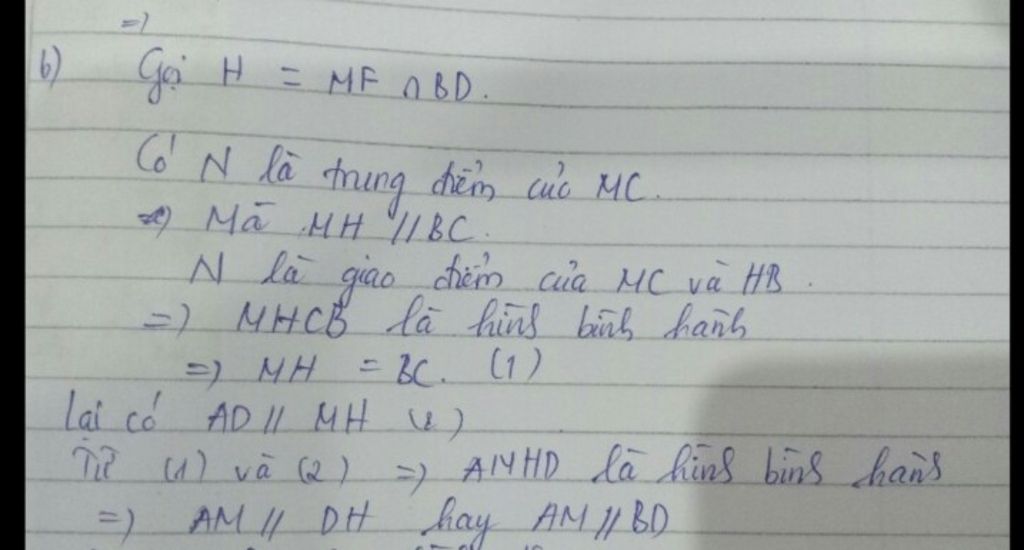 =)
b) Gọi H = MF ∩ BD.
Có N là trung điểm của MC.
=) Mà MH // BC.
N là giao điểm của MC và HB.
=) MHCB là hình bình hành
=) MH = BC. (1)
Lại có AD // MH (2)
Từ (1) và (2) =) AMHD là hình bình hành
=) AM // DH hay AM // BD